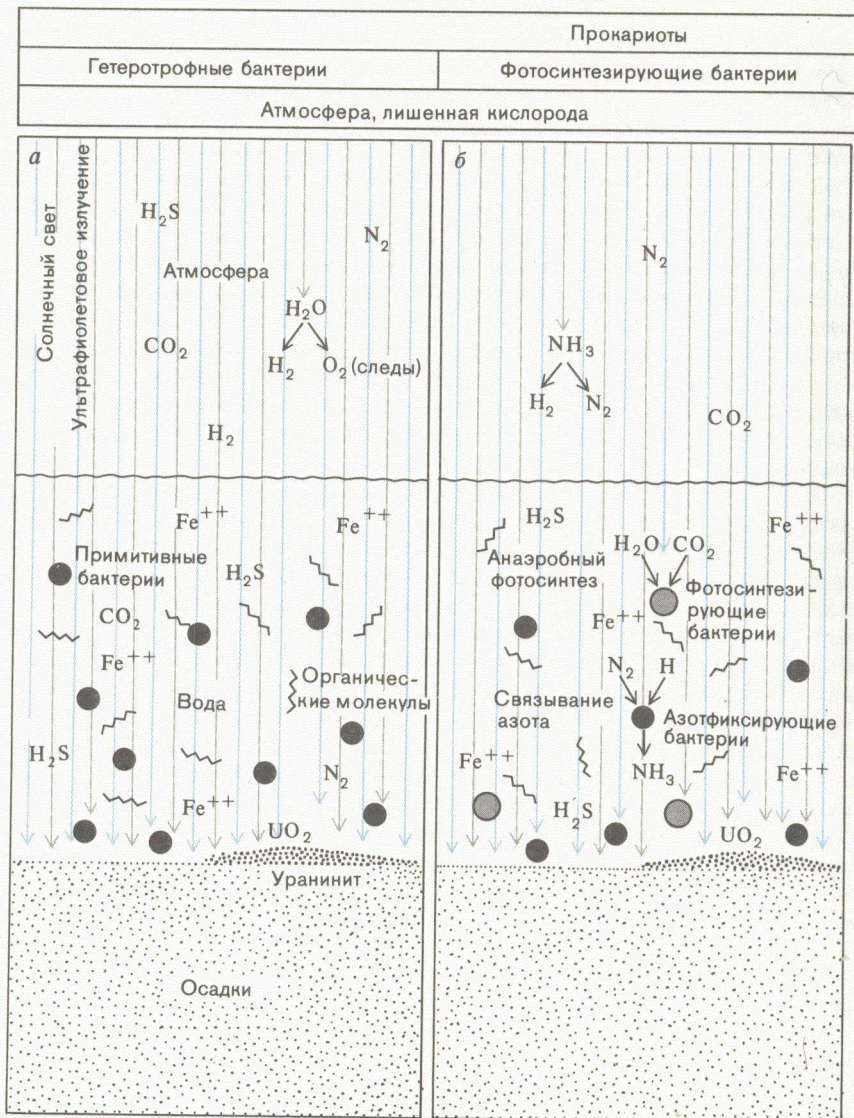 Прокариоты
Гетеротрофные бактерии
Фотосинтезирующие бактерии
Атмосфера, лишенная кислорода
а
Солнечный свет
Ультрафиолетовое излучение
H₂S
N₂
Атмосфера
H₂O
CO₂
H₂
O₂ (следы)
H₂
Fe⁺⁺
Fe⁺⁺
Примитивные
бактерии
H₂S
CO₂
Fe⁺⁺
Органичес-
кие молекулы
Вода
H₂S
N₂
Fe⁺⁺
UO₂
Уранинит
Осадки
б
N₂
NH₃
H₂
N₂
CO₂
H₂S
Fe⁺⁺
H₂O
CO₂
Анаэробный
фотосинтез
Фотосинтези-
рующие
бактерии
Fe⁺⁺
N₂
H
Связывание
азота
Азотфиксирующие
бактерии
Fe⁺⁺
NH₃
Fe⁺⁺
H₂S
UO₂